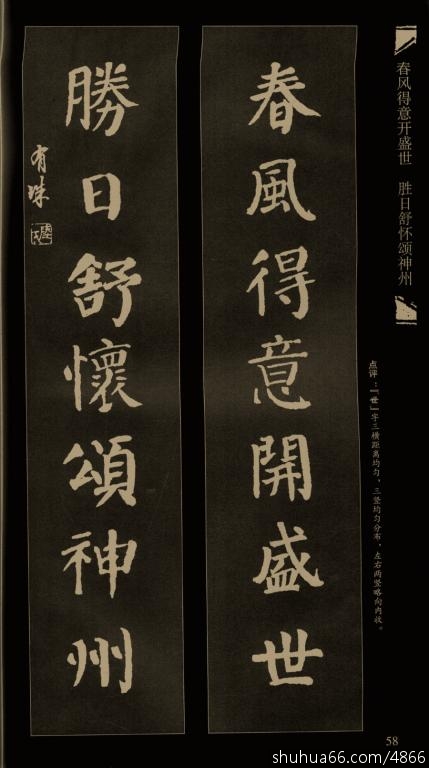 春风得意开盛世　胜日舒怀颂神州
点评：「世」字三横距离均匀，三竖均匀分布，左右两竖略向内收。
春風得意開盛世
勝日舒懷頌神州
有珠
58
shuhua66.com/4866